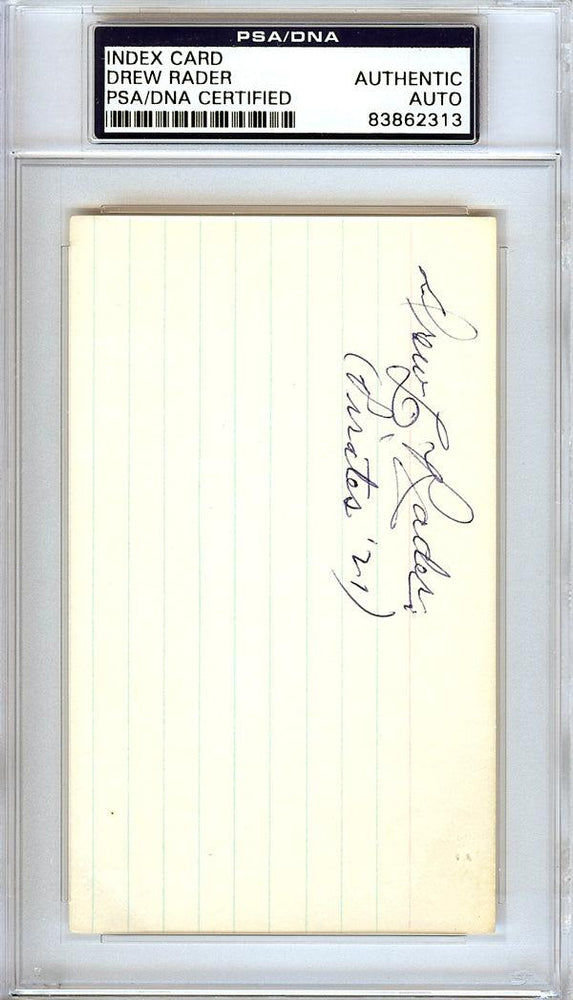 PSA/DNA
INDEX CARD
DREW RADER
PSA/DNA CERTIFIED
AUTHENTIC
AUTO
83862313
Drew L Rader
(Pirates '21)